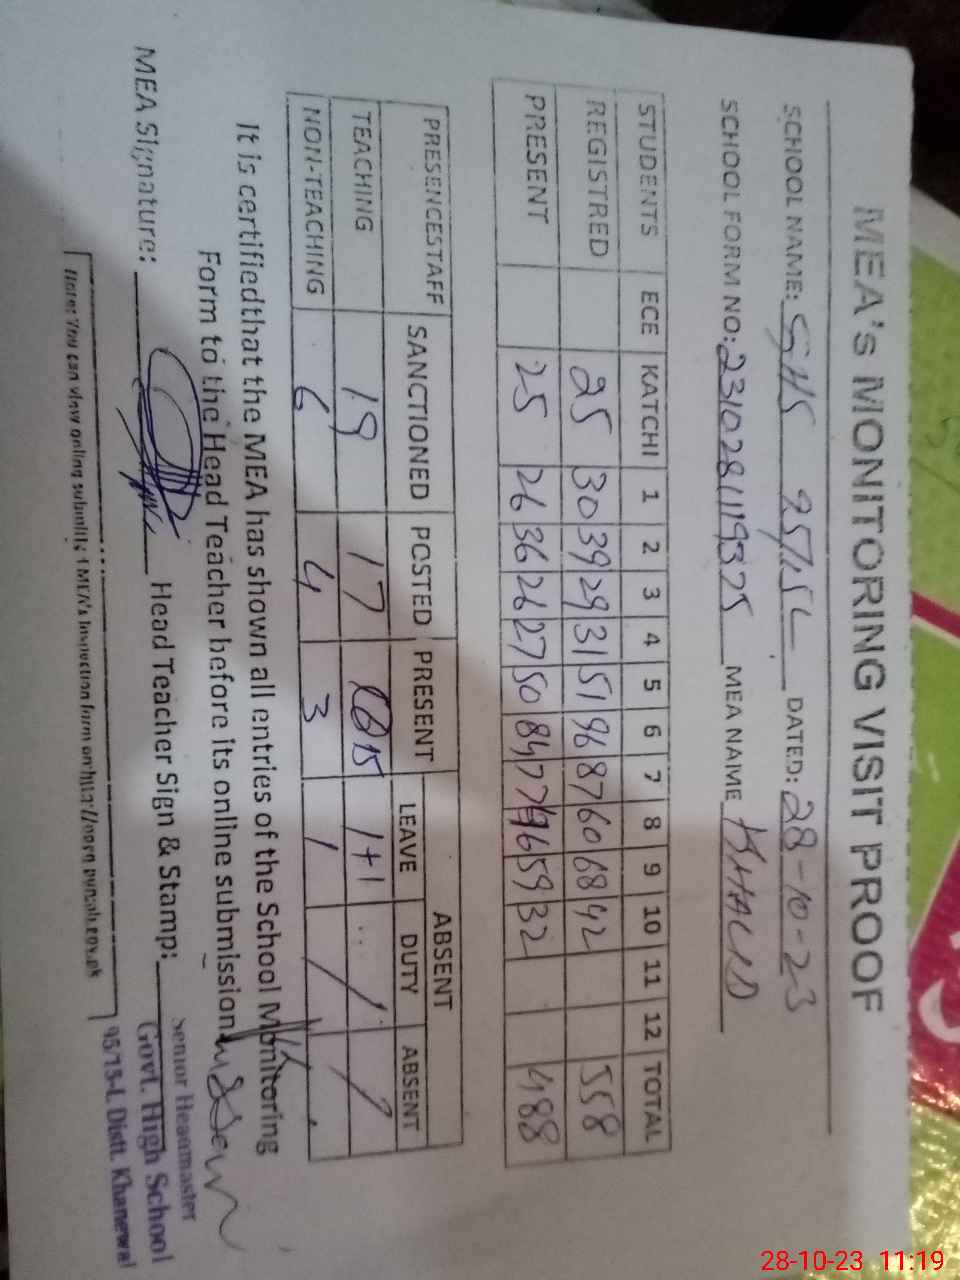 MEA's MONITORING VISIT PROOF
SCHOOL NAME: GHS 95/15L DATED: 28-10-23
SCHOOL FORM NO: 2310281119375 MEA NAME KHALID
STUDENTS ECE KATCHI 1 2 3 4 5 6 7 8 9 10 11 12 TOTAL
REGISTRED 25 30 39 29 31 51 96 87 60 68 42 558
PRESENT 25 26 36 26 27 50 84 77 46 59 32 488
PRESENCESTAFF SANCTIONED POSTED PRESENT ABSENT
LEAVE DUTY ABSENT
TEACHING 19 17 15 1+1 / /
NON-TEACHING 6 4 3 1 /
It is certifiedthat the MEA has shown all entries of the School Monitoring
Form to the Head Teacher before its online submission.
MEA Signature: Head Teacher Sign & Stamp:
Senior Headmaster
Govt. High School
95/15-L Distt. Khanewal
Note: You can view online submitted MEA's Inspection form on http://open.punjab.gov.pk
28-10-23 11:19